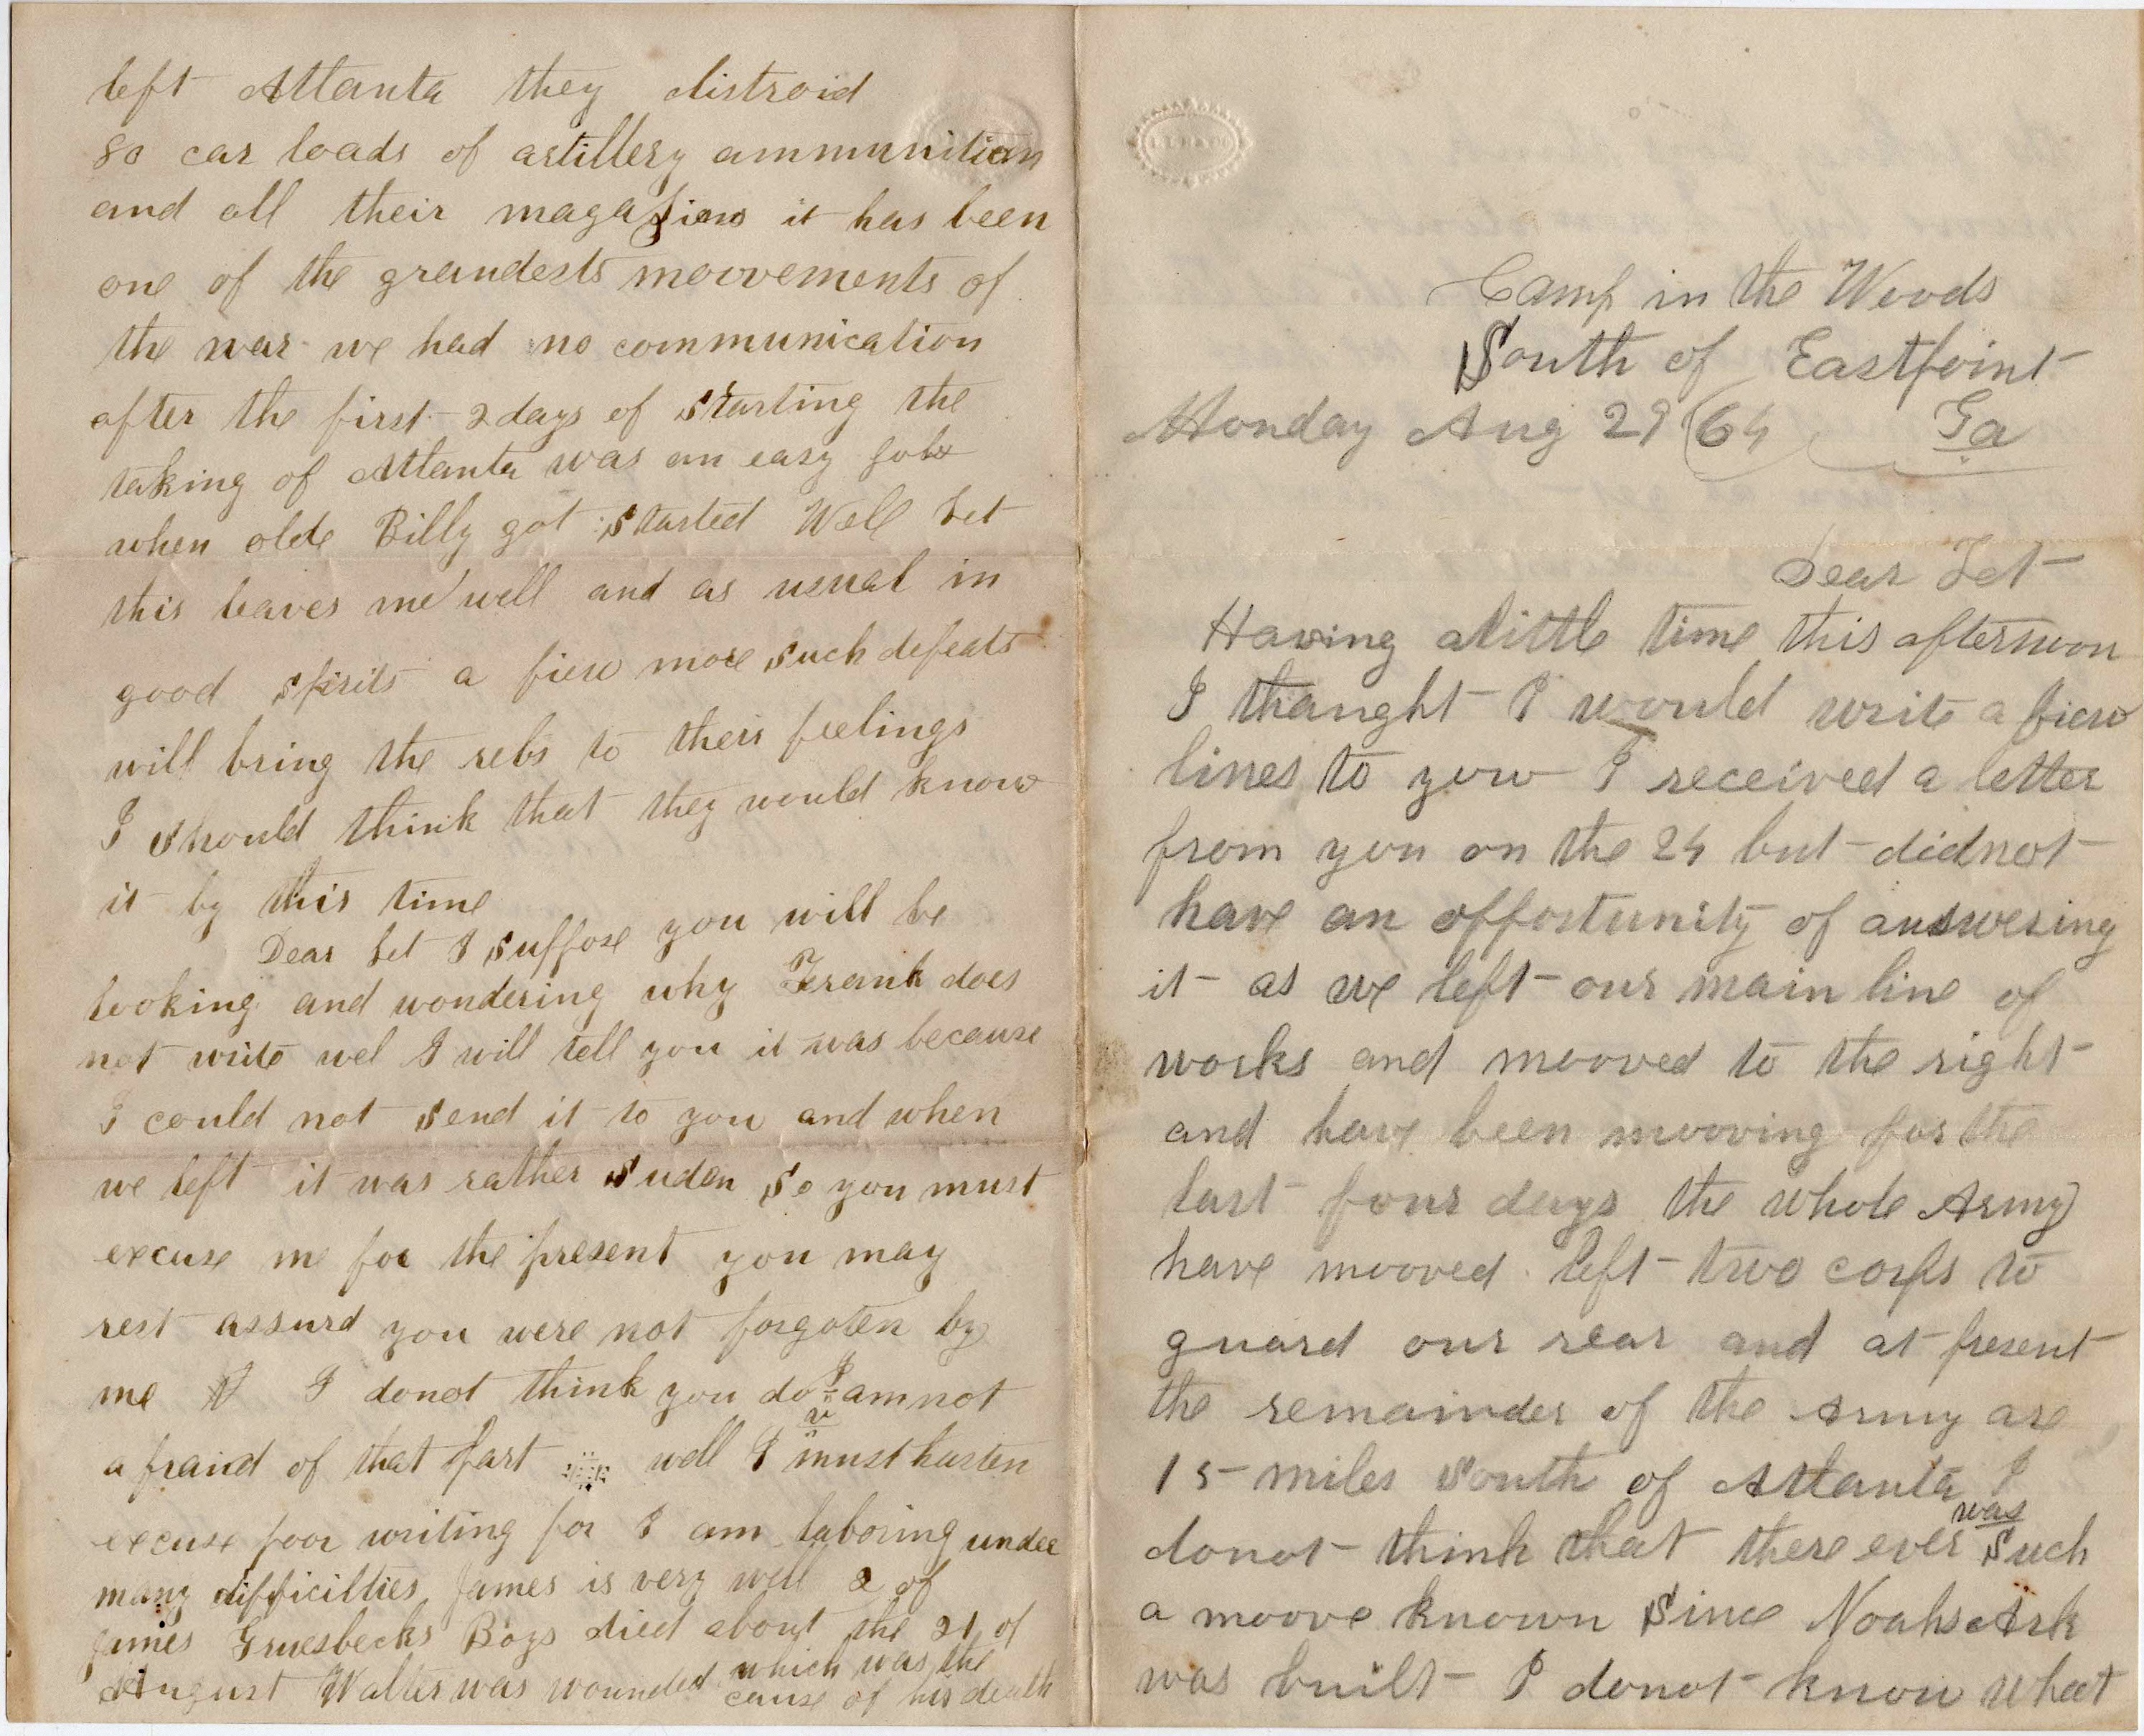 left Atlanta they distroid
80 car loads of artillery ammunition
and all their magaziens it has been
one of the grandests moovements of
the war we had no communication
after the first 2 days of starting the
taking of Atlanta was an easy jobe
when olde Billy got started Well Let
this leaves me well and as usual in
good spirits a fiew more such defeats
will bring the rebs to their feelings
I should think that they would know
it by this time
Dear Let I suppose you will be
looking and wondering why Frank does
not write wel I will tell you it was because
I could not send it to you and when
we left it was rather suden so you must
excuse me for the present you may
rest assurd you were not forgoten by
me I donot think you do I am not
a fraid of that part well I must hasten
excuse poor writing for I am laboring under
many difficilties James is very well 2 of
James Gruesbecks Boys died about the 21 of
August Walter was wounded which was the
cause of his death
Camp in the Woods
South of Eastpoint
Monday Aug 29 (64 Ga
Dear Let
Having alittle time this afternoon
I thaught I would write a fiew
lines to yow I received a letter
from you on the 24 but didnot
have an opportunity of answering
it as we left our main line of
works and mooved to the right
and have been mooving for the
last four days the whole Army
have mooved left two corps to
guard our rear and at present
the remainder of the army are
15 miles South of Atlanta I
donot think that there ever was Such
a moove known Since Noahs Ark
was built I donot know what